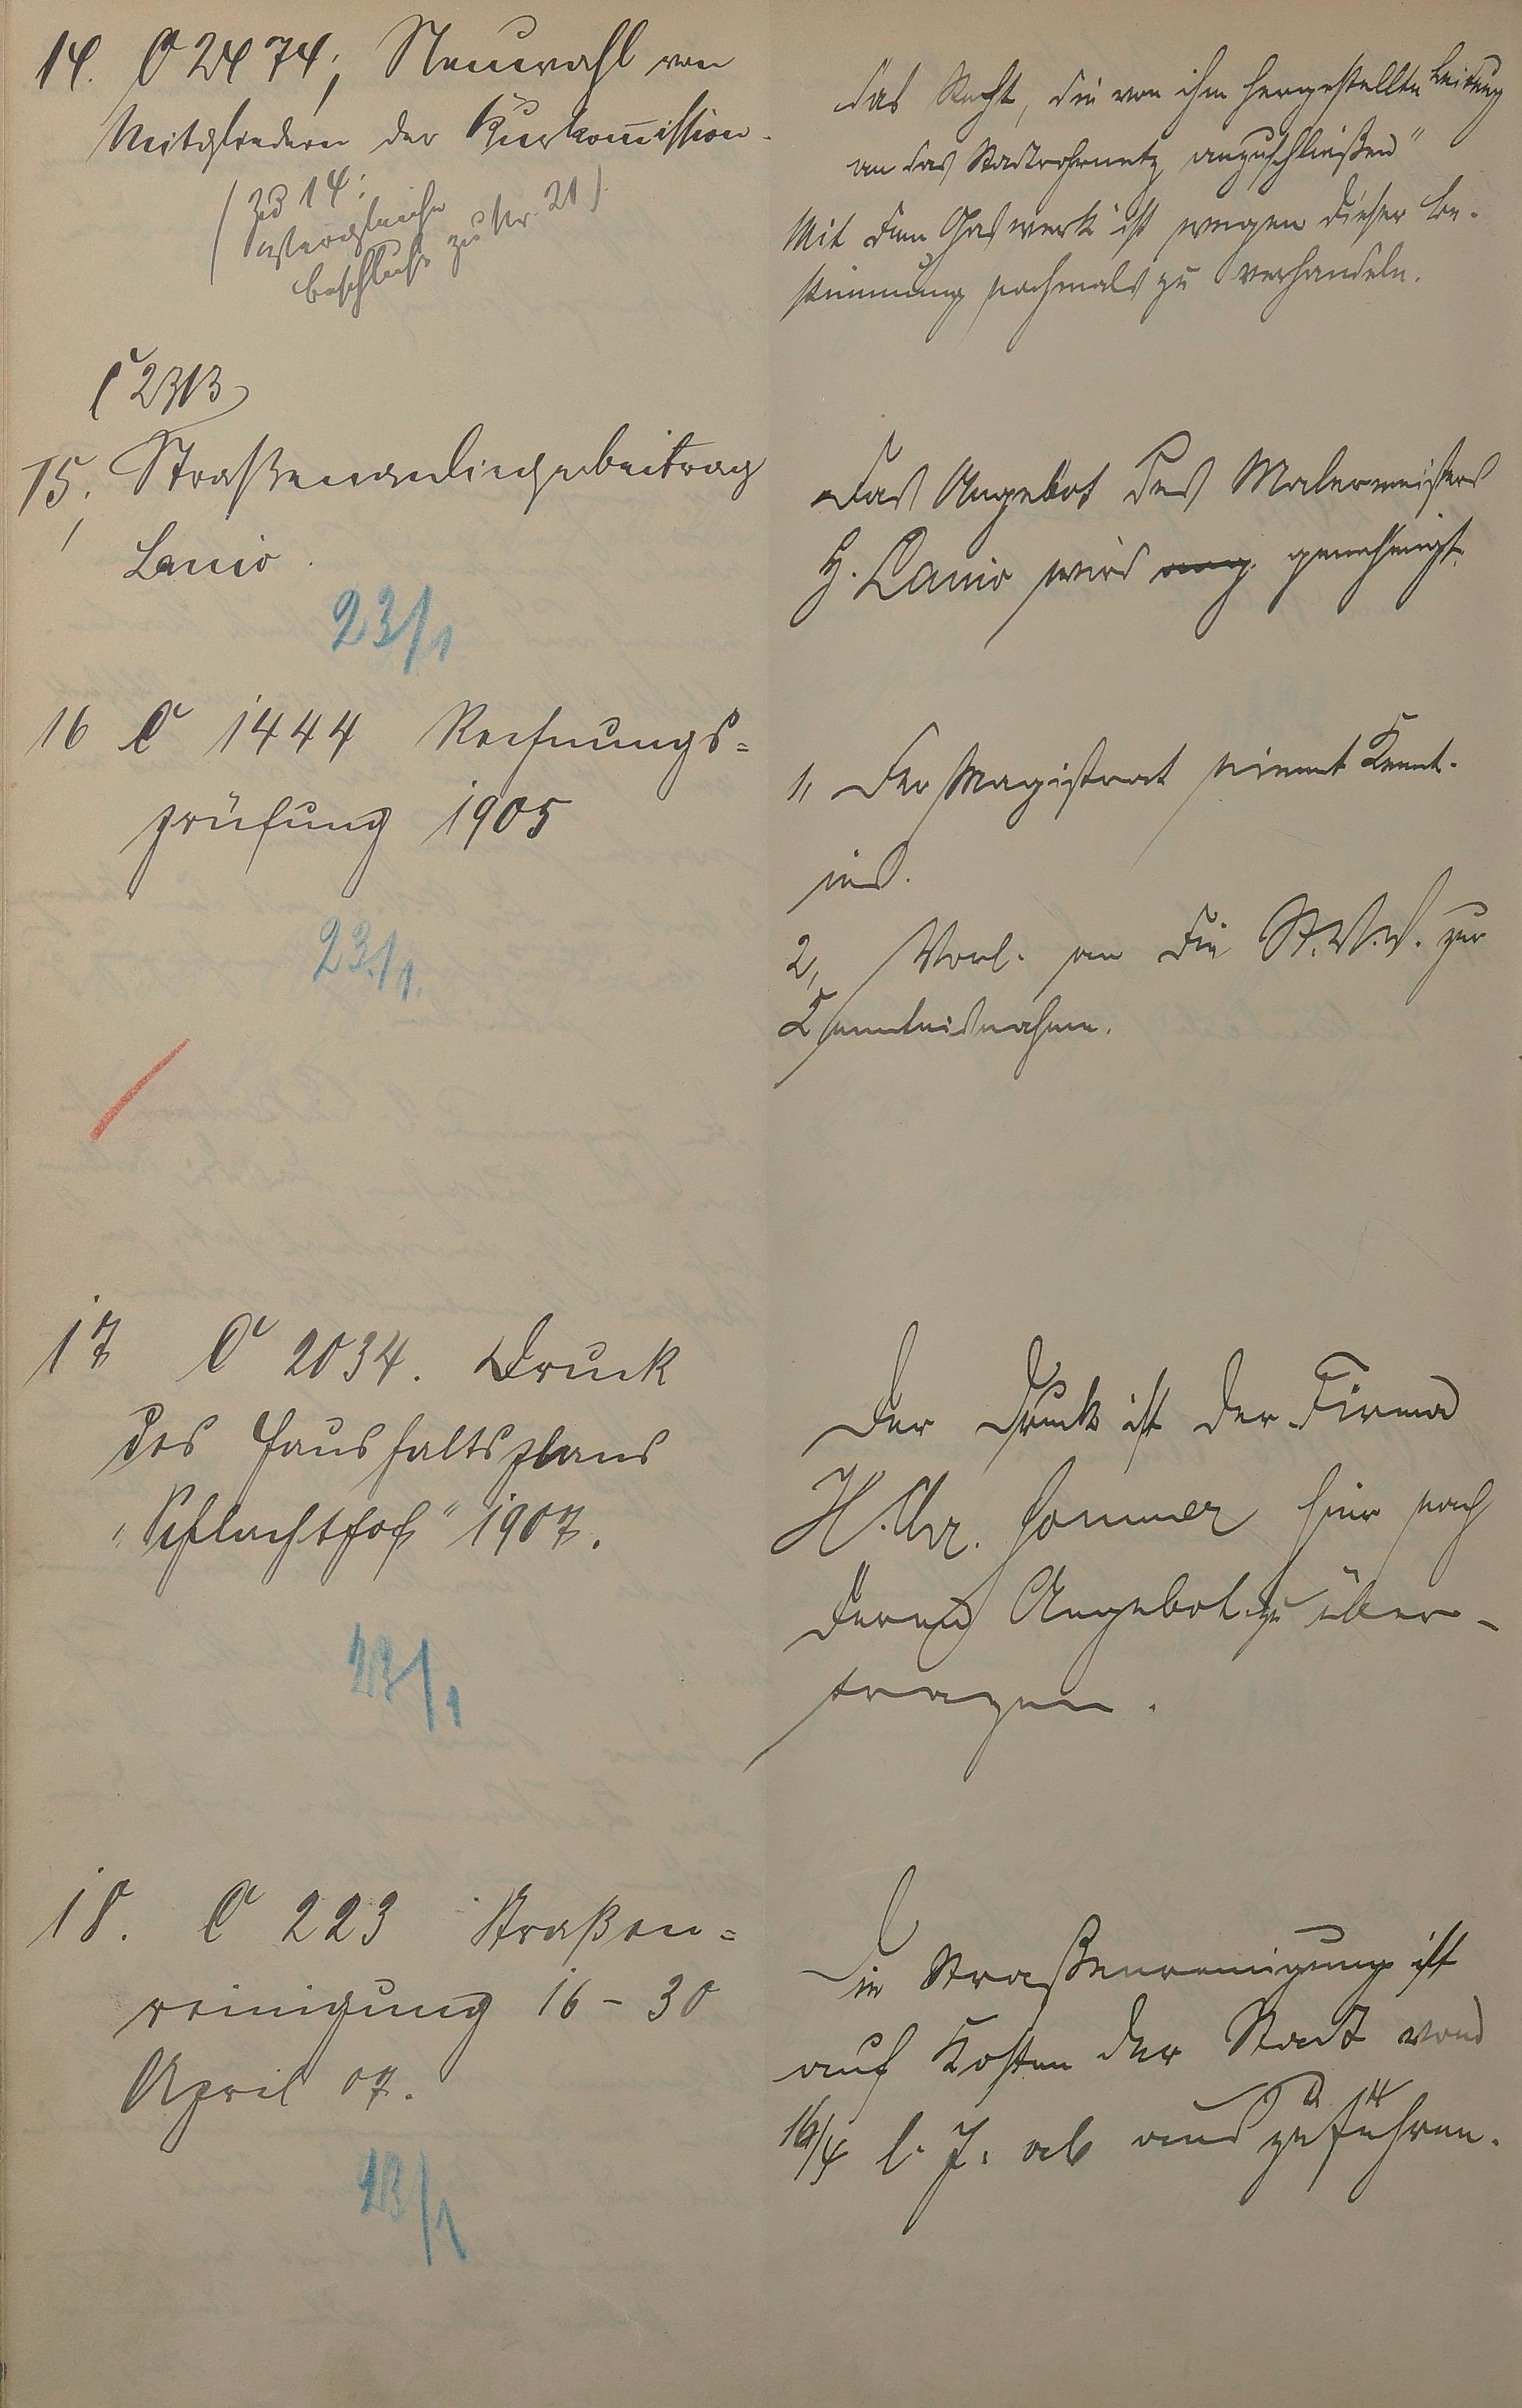 14. C 2474; Neuwahl von
Mitgliedern der Kurkommission.
(zu 14:
vergleiche
beschluß zu Nr. 21)
das Recht, die von ihm hergestellte Leitung
an das Stadtrohrnetz anzuschließen"
Mit dem Gaswerk ist wegen dieser Be-
stimmung nochmals zu verhandeln.
C 2313
15. Straßenanliegerbeitrag
Lanio.
23/1
Das Angebot des Malermeisters
H. Lanio wird ang. genehmigt.
16 C 1444 Rechnungs=
prüfung 1905
23./1.
1, Der Magistrat nimmt Kennt-
nis.
2, Vorl. an die St.V.V. zur
Kenntnisnahme.
17 C 2034. Druck
des Haushaltsplans
"Schlachthof" 1907.
23/1
Der Druck ist der Firma
Hommer hier nach
deren Angebot zu über-
tragen.
18. C 223 Straßen=
reinigung 16-30
April 07.
23/1
Die Straßenreinigung ist
auf Kosten der Stadt vom
16/4 l. J. ab auszuführen.